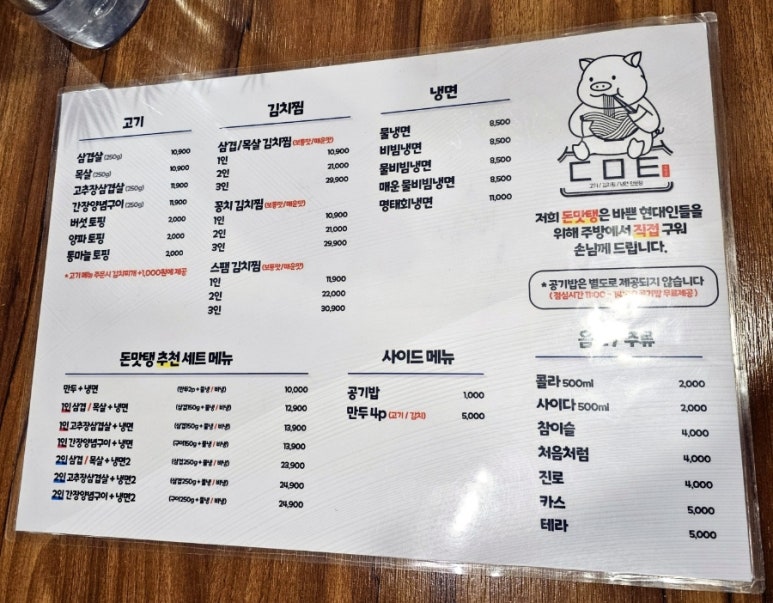 고기
삼겹살 (250g) 10,900
목살 (250g) 10,900
고추장삼겹살 (250g) 11,900
간장양념구이 (250g) 11,900
버섯 토핑 2,000
양파 토핑 2,000
통마늘 토핑 2,000
* 고기 메뉴 주문시 김치찌개 +1,000원에 제공
김치찜
삼겹/목살 김치찜 (보통맛/매운맛)
1인 10,900
2인 21,000
3인 29,900
꽁치 김치찜 (보통맛/매운맛)
1인 10,900
2인 21,000
3인 29,900
스팸 김치찜 (보통맛/매운맛)
1인 11,900
2인 22,000
3인 30,900
냉면
물냉면 8,500
비빔냉면 8,500
물비빔냉면 8,500
매운 물비빔냉면 8,500
명태회냉면 11,000
저희 돈맛탱은 바쁜 현대인들을
위해 주방에서 직접 구워
손님께 드립니다.
* 공기밥은 별도로 제공되지 않습니다
(점심시간 11:00 ~ 공기밥 무료제공)
돈맛탱 추천 세트 메뉴
만두 + 냉면 (만두2p + 물냉 / 비냉) 10,000
1인 삼겹 / 목살 + 냉면 (삼겹150g + 물냉 / 비냉) 12,900
1인 고추장삼겹살 + 냉면 (삼겹150g + 물냉 / 비냉) 13,900
1인 간장양념구이 + 냉면 (구이150g + 물냉 / 비냉) 13,900
2인 삼겹 / 목살 + 냉면2 (삼겹250g + 물냉 / 비냉) 23,900
2인 고추장삼겹살 + 냉면2 (삼겹250g + 물냉 / 비냉) 24,900
2인 간장양념구이 + 냉면2 (구이250g + 물냉 / 비냉) 24,900
사이드 메뉴
공기밥 1,000
만두 4p (고기 / 김치) 5,000
주류
콜라 500ml 2,000
사이다 500ml 2,000
참이슬 4,000
처음처럼 4,000
진로 4,000
카스 5,000
테라 5,000